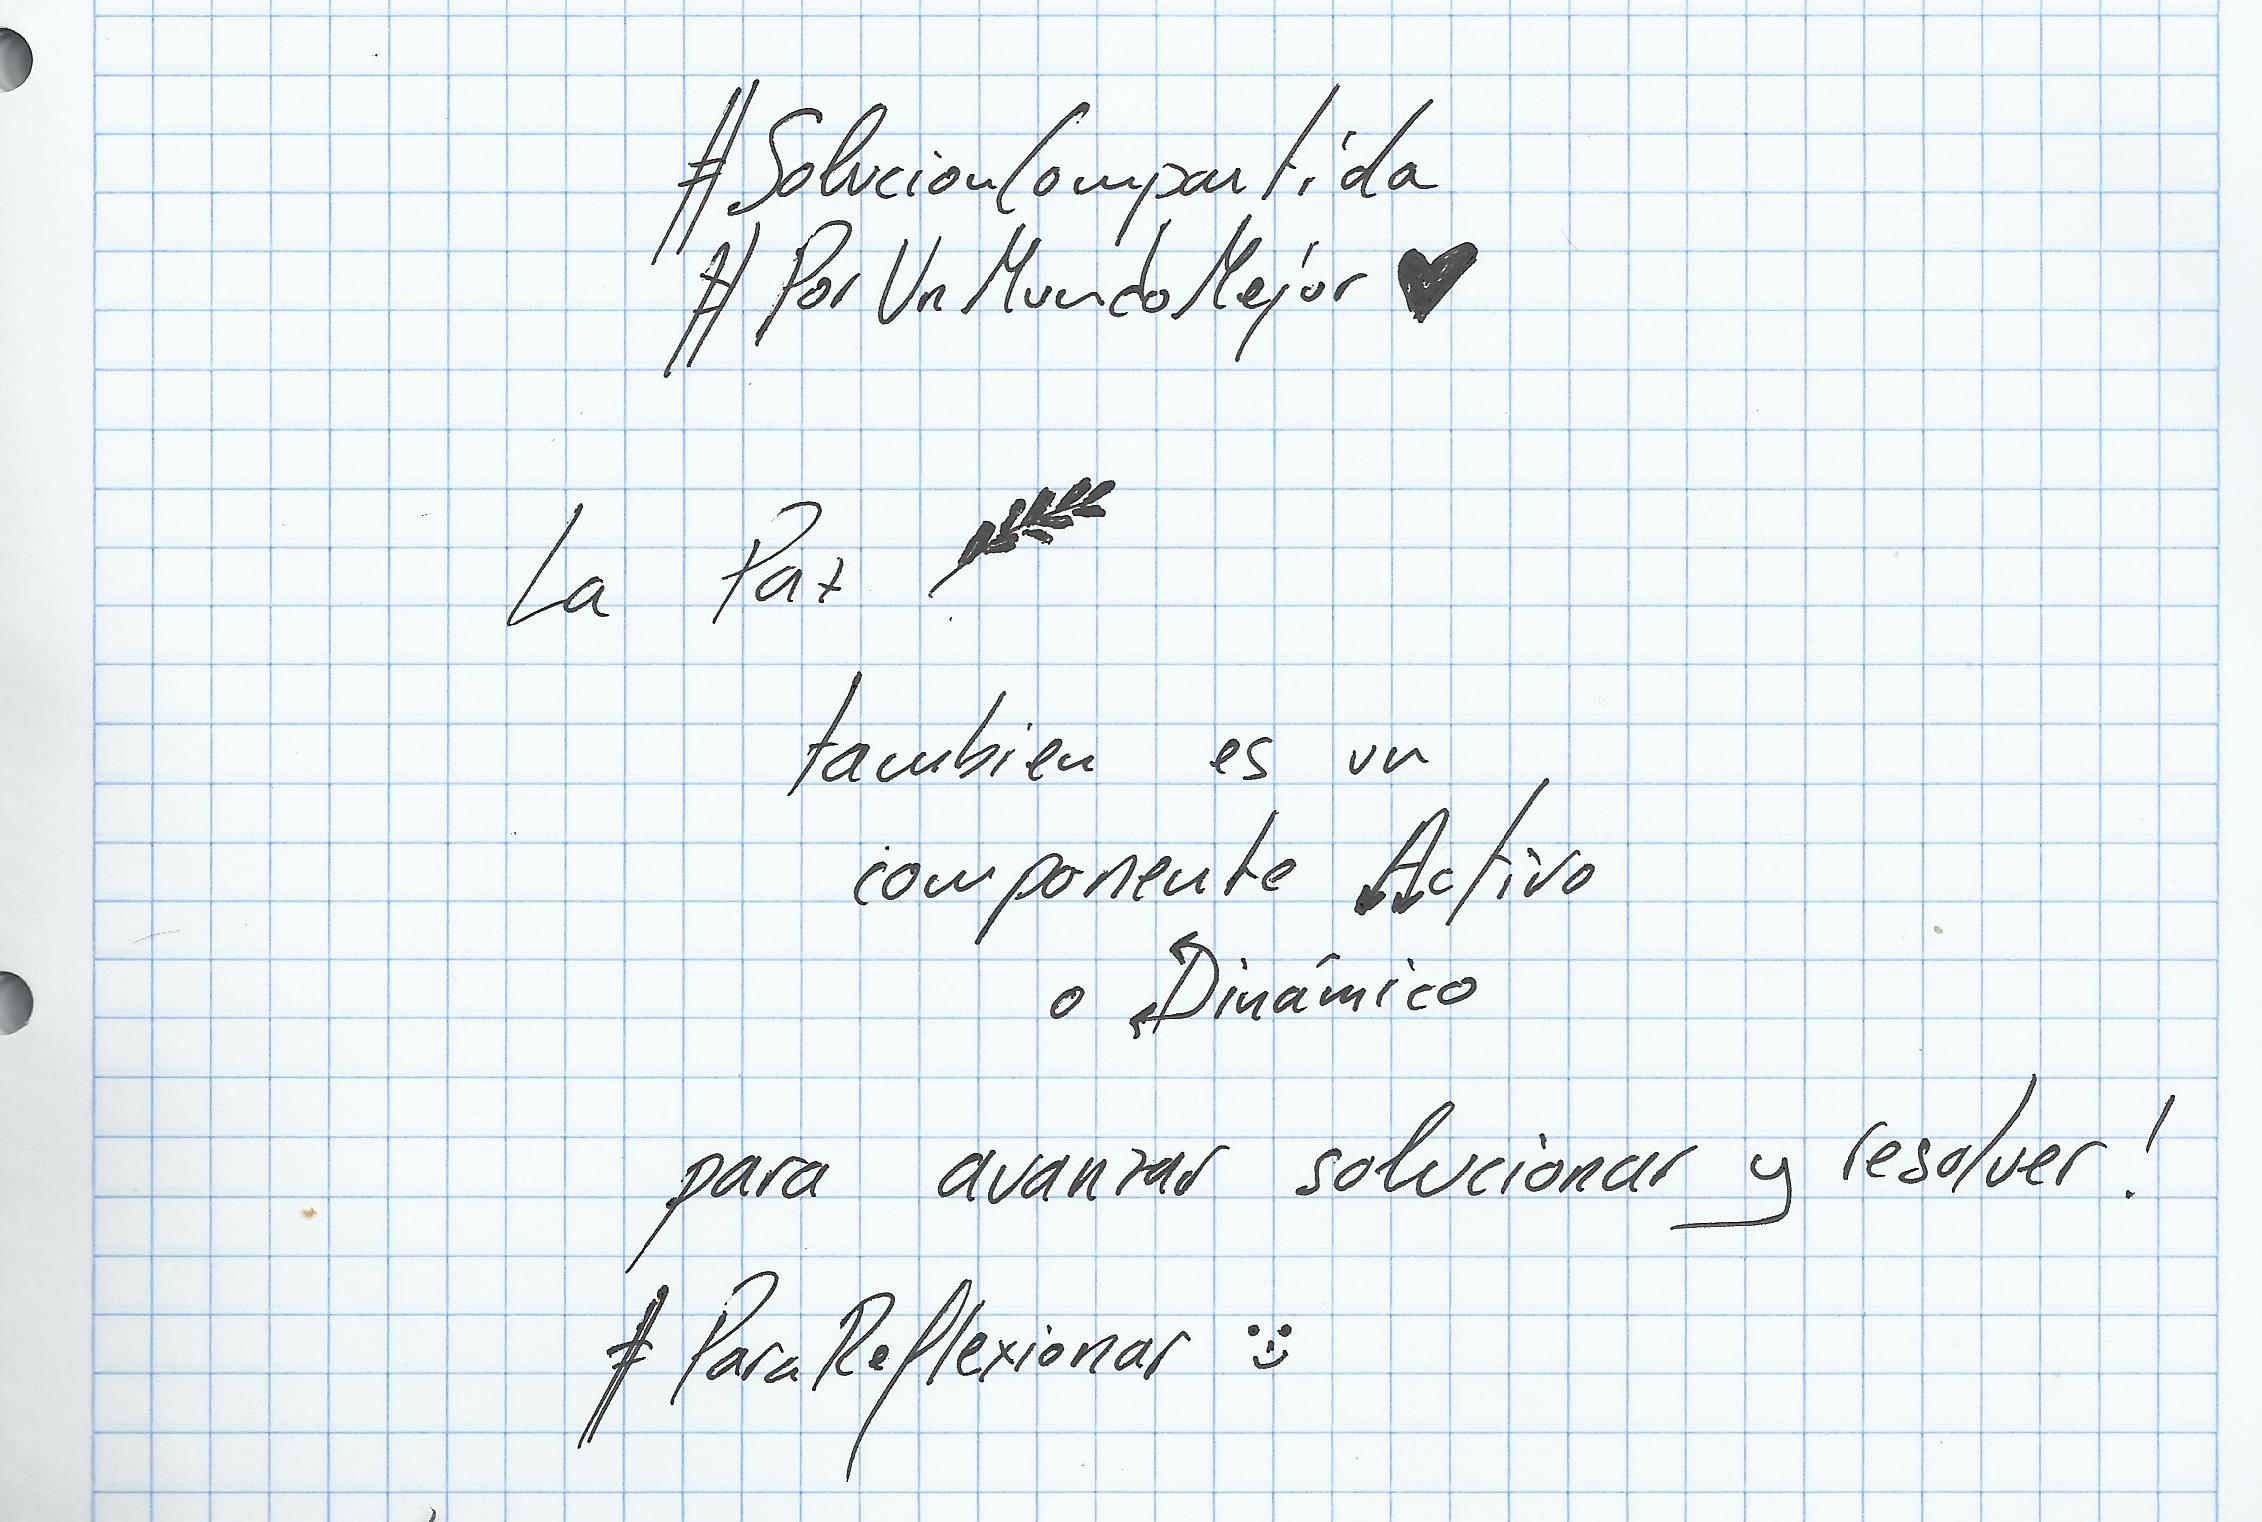 #SolucionCompartida
#PorUnMundoMejor ♥
La Paz
tambien es un
componente Activo
o Dinámico
para avanzar solucionar y resolver!
#ParaReflexionar